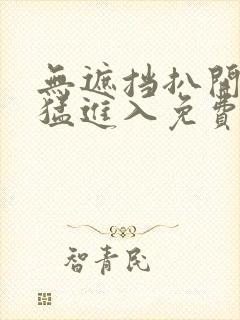 無遮挡扒開
猛進入免費
智青民